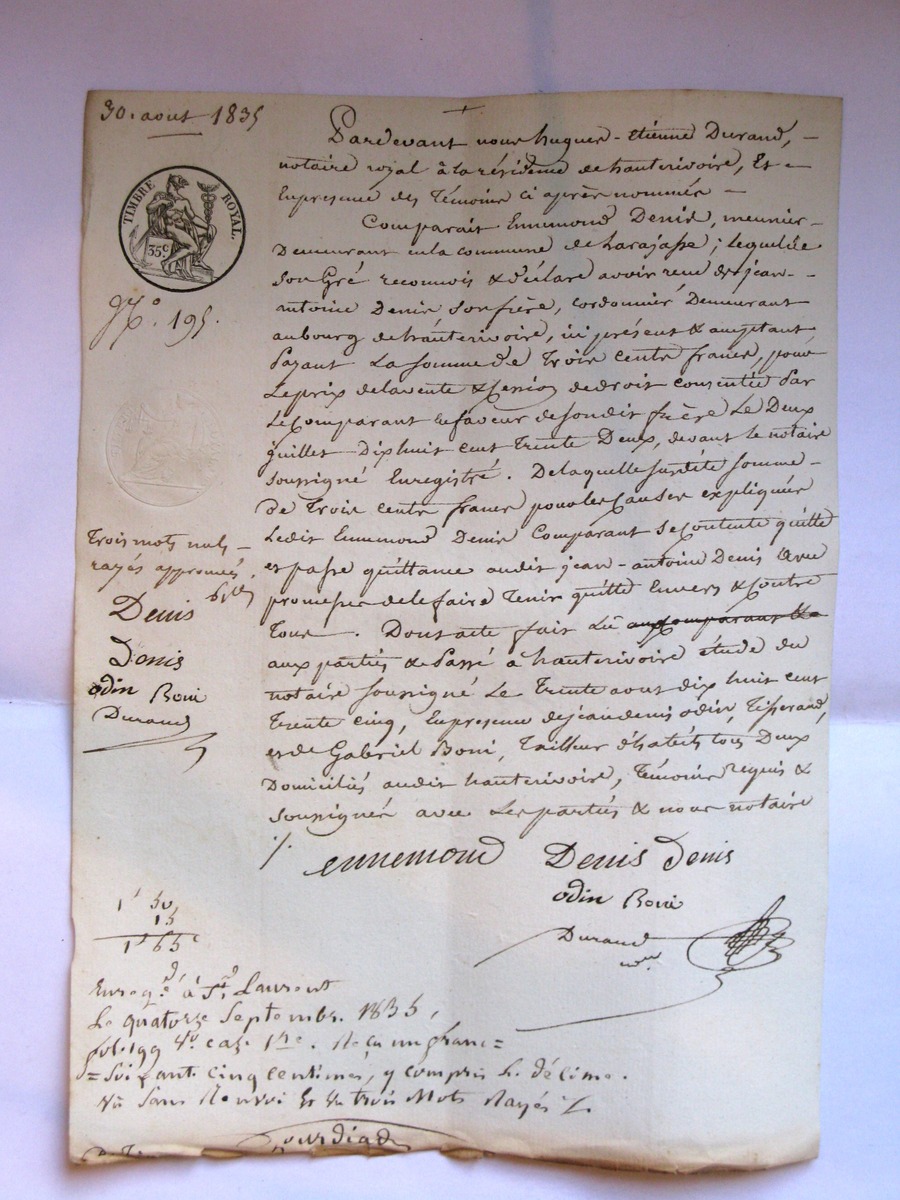 30. aout 1835
TIMBRE ROYAL.
35c
No. 195.
Pardevant nous hugues-Etienne Durand,
notaire royal à la résidence de hauterivoire, Et
En presence des Témoins ci après nommés
Comparait Ennemond Denis, meunier
Demeurant en la commune de Larajasse ; lequel de
son Gré reconnois & déclare avoir reçu de jean-
antoine Denis son frère, cordonnier Demeurant
au bourg de hauterivoire, ici présent & acceptant
Payant La somme de Trois cents francs, pour
Le prix de la vente & Cession de droit consentée Par
Le Comparant En faveur de son dit frère Le Deux
juillet Dix huit cent Trente Deux, devant le notaire
soussigné Enregistré. De laquelle susdite somme
de Trois cents francs pour les Causes expliquées
Ledit Ennemond Denis Comparant se Contente quitte
et passe quittance audit jean-antoine Denis avec
promesse de le faire Tenir quitte Envers & Contre
Tous. Dont acte fait Lu aux comparants &
aux parties & Passé à hauterivoire étude du
notaire soussigné Le Trente aout dix huit cent
Trente cinq, En presence de jean denis odin, Tisserand,
et de Gabriel Boni, Tailleur d'habits tous Deux
Domiciliés audit hauterivoire, Témoins Requis &
soussignés avec Les parties & nous notaire
ennemond Denis Denis
odin Boni
Durand
Nre
Trois mots nuls
rayés approuvés
Denis
Denis
odin Boni
Durand
1f 50
15
1f 65c
Enregé à St Laurent
Le quatorze Septembre 1835,
fol. 199 Vo. case 1re. Reçu un franc
Soixante cinq centimes, y compris le décime.
Vu Sans Renvoi Et Vu trois Mots Rayés